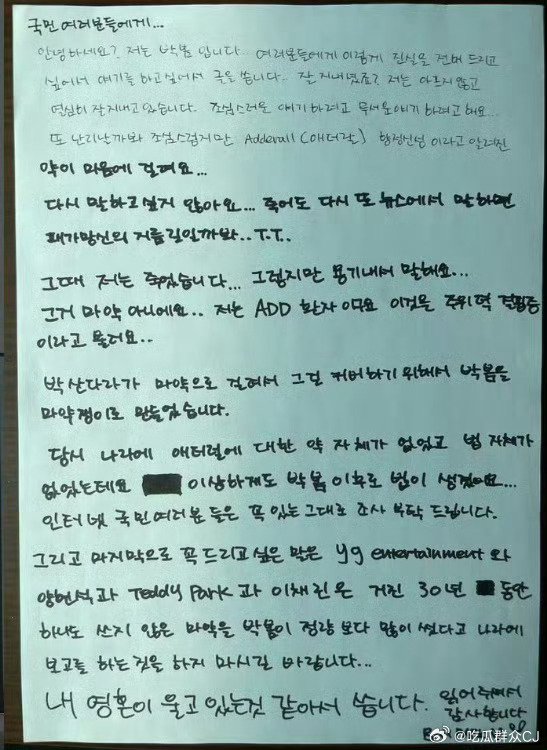 국민 여러분들에게...
안녕하세요? 저는 박봄 입니다.. 여러분들에게 이렇게 진실을 전버 드리고
싶어서 얘기를 하고싶어서 글을 씁니다.. 잘 지내셨죠? 저는 아프지 않고
열심히 잘지내고 있습니다. 조심스러운 얘기하려고 무서운얘기 하려고 해요...
또 난리날까봐 조심스럽지만 Adderall (애더럴) 향정신성 이라고 알려진
약이 마음에 걸려요...
다시 말하고싶지 않아요... 죽어도 다시 또 뉴스에서 말하면
패가망신의 지름길일까봐..T.T..
그때 저는 죽었습니다... 그렇지만 용기내서 말해요...
그거 마약 아니에요.. 저는 ADD 환자 이구요 이것을 주위력 결핍증
이라고 불러요..
박산다라가 마약으로 걸려서 그걸 커버하기 위해서 박봄을
마약쟁이로 만들었습니다.
당시 나라에 애터럴에 대한 약 자체가 없었고 법 자체가
없었는데요 이상하게도 박봄 이후로 법이 생겼어요...
인터넷 국민여러분 들은 꼭 있는그대로 조사 부탁 드립니다.
그리고 마지막으로 꼭드리고 싶은 말은 yg entertainment 와
양현석과 Teddy Park 과 이채린은 거진 30년 동안
하나도 쓰지 않은 마약을 박봄이 정량 보다 많이 썼다고 나라에
보고를 하는것을 하지 마시길 바랍니다...
내 영혼이 울고 있는것 같아서 씁니다. 읽어주셔서
감사합니다
@吃瓜群众CJ